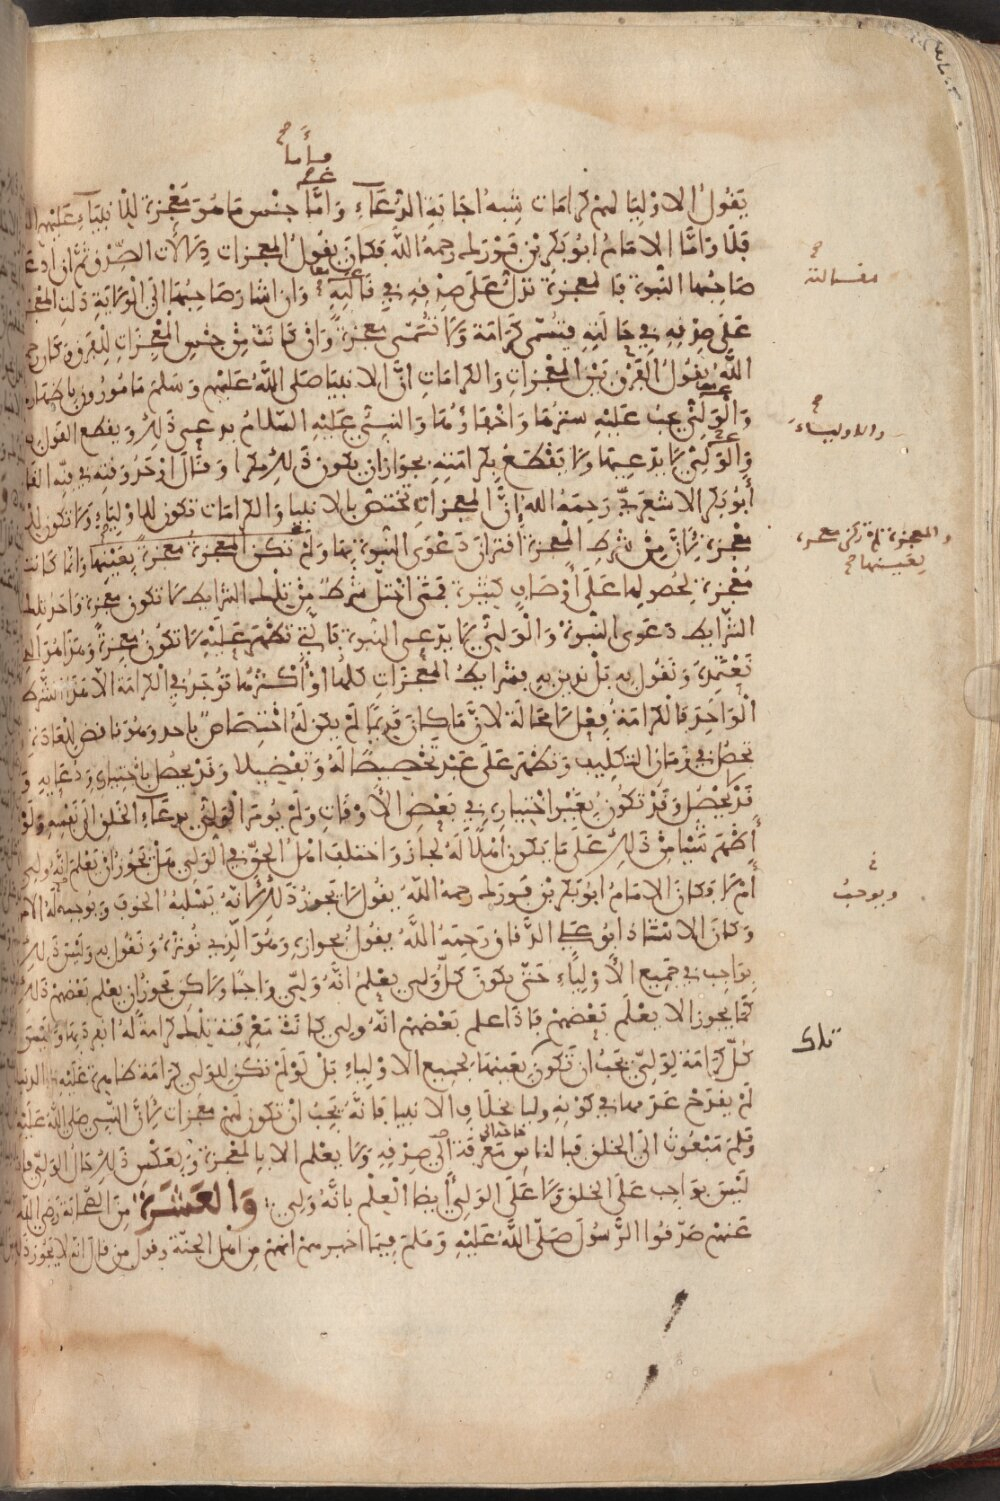 فأما
يقول الاوليا لهم كرامات شبه اجابة الدعاء وأما جنس ما هو معجزة للانبياء عليهم
فلا وأما الامام ابو بكر بن فورك رحمه الله فكان يقول المعجزات دلالات الصدق ثم ان ادعى
صاحبها النبوة فالمعجزة تدل على صدقه في قاليه وان اشار صاحبها الى الولاية دلت المعجزة
على صدقه في حاله فتسمى كرامة ولا تسمى معجزة وان كانت من جنس المعجزات للفرق وكان رحمه
الله يقول الفرق بين المعجزات والكرامات ان الانبيا صلى الله عليهم وسلم مامورون باظهارها
والولي يجب عليه سترها واخفاؤها والنبي عليه السلام يدعي ذلك ويقطع القول به
والولي لا يدعيها ولا يقطع بكرامته بجواز ان يكون ذلك مكرا وقال اوحد وقته في فنه القاضي
أبو بكر الاشعري رحمه الله ان المعجزات تختص بالانبيا والكرامات تكون للاولياء ولا تكون للاوليا
معجزة لان من شرط المعجزة اقتران دعوى النبوة بها ولم تكن المعجزة معجزة بعينها وانما كانت
معجزة لحصولها على أوصاف كثيرة فمتى اختل شرط من تلك الشرايط لا تكون معجزة واحد تلك
الشرايط دعوى النبوة والولي لا يدعي النبوة فالذي تظهر عليه لا تكون معجزة وهذا هو الذي
نعتمده ونقول به بل ندين به فشرايط المعجزات كلها او أكثرها توجد في الكرامة الا هذا الشرط
الواحد فالكرامة فعل لا محالة لان ما كان قديما لم يكن له اختصاص باحد وهو ناقض للعادة
تحصل في زمان التكليف وتظهر على عبد تخصيصا له وتفضيلا وقد يحصل باختياره ودعايه و
قد لا يحصل وقد تكون بغير اختياره في بعض الأوقات ولم يؤمر الولي بدعاء الخلق الى نفسه ولو
أظهر شيا من ذلك على ما يكون أهلا له لجاز واختلف اهل الحق في الولي هل يجوز أن يعلم انه ولي
أم لا فكان الامام ابو بكر بن فورك رحمه الله يقول لا يجوز ذلك لانه يسلبه الخوف ويوجب له الامن
وكان الاستاذ ابو علي الدقاق رحمه الله يقول بجوازه وهو الذي نوثره ونقول به وليس ذلك
بواجب في جميع الأولياء حتى يكون كل ولي يعلم انه ولي واجبا ولاكن يجوز ان يعلم بعضهم ذلك
كما يجوز الا يعلم بعضهم فاذا علم بعضهم انه ولي كانت معرفته تلك كرامة له انفرد بها وليس
كل كرامة لولي يجب ان تكون بعينها لجميع الاولياء بل لو لم تكن للولي كرامة ظاهرة عليه في الدنيا
لم يقدح عدمها في كونه وليا بخلاف الانبيا فانه يجب ان تكون لهم معجزات لان النبي صلى الله عليه
وسلم مبعوث الى الخلق فبالناس حاجة الى معرفة صدقه ولا يعلم الا بالمعجزة وبعكس ذلك حال الولي
ليس بواجب على الخلق ولا على الولي أيضا العلم بانه ولي والعشرة من الصحابة رضي الله
عنهم صدقوا الرسول صلى الله عليه وسلم فيما اخبرهم انهم من اهل الجنة وقول من قال انه لا يجوز ذلك
والاولياء
بعينها
ويوجب
تلك